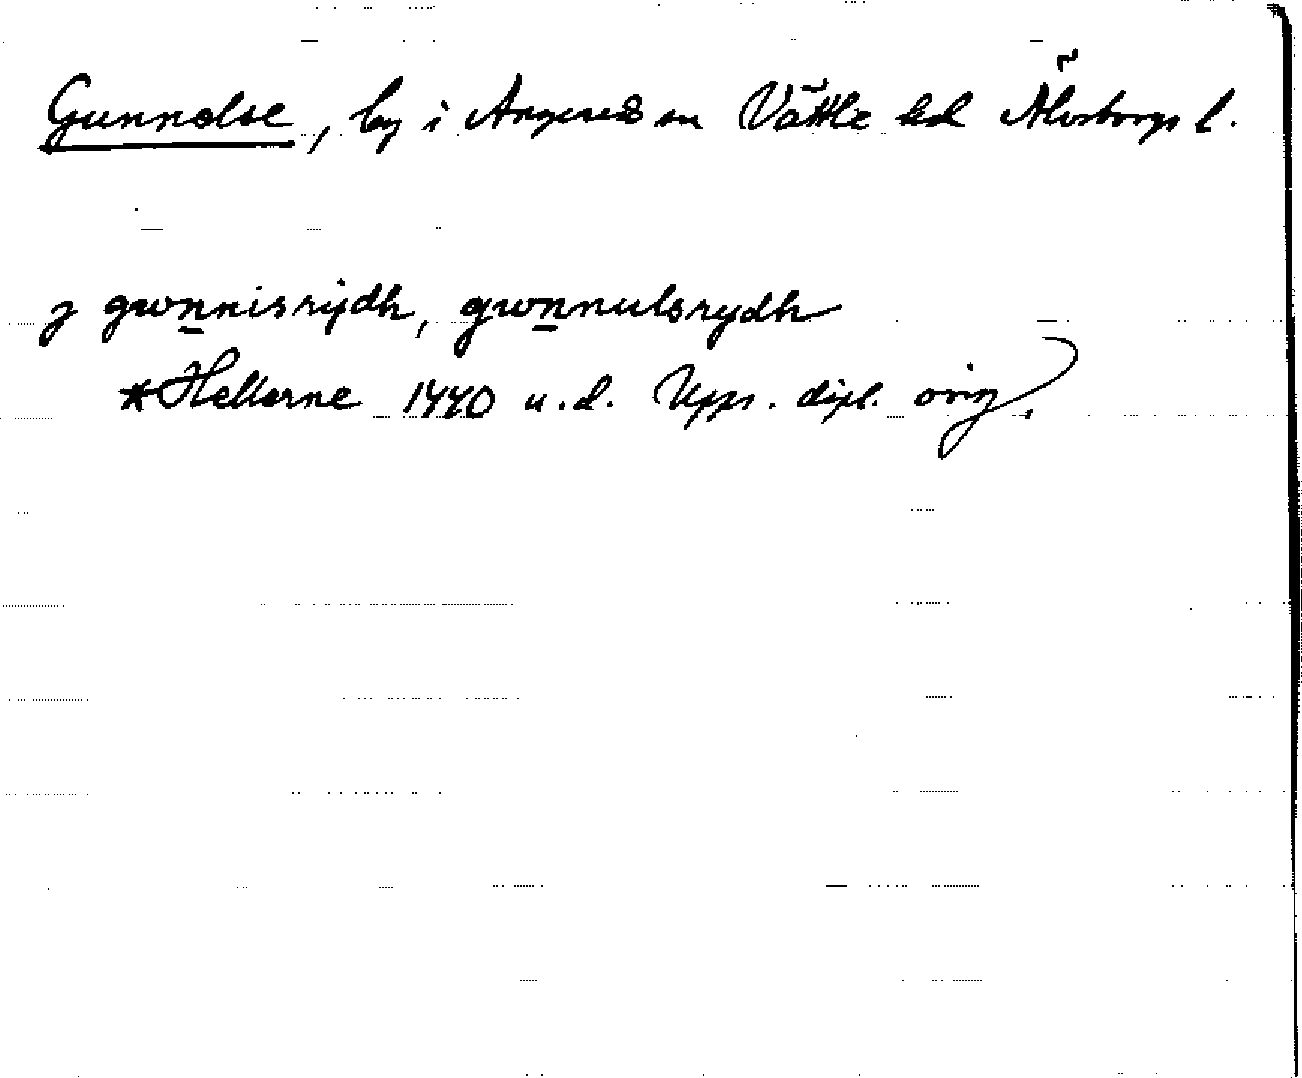 Gunnelse, by i Angereds sn Vättle hd Älvsborgs l.
j gwnnisrydh, gwnnulsrydh
*Hellerne 1440 u.d. Upps. dipl. orig.